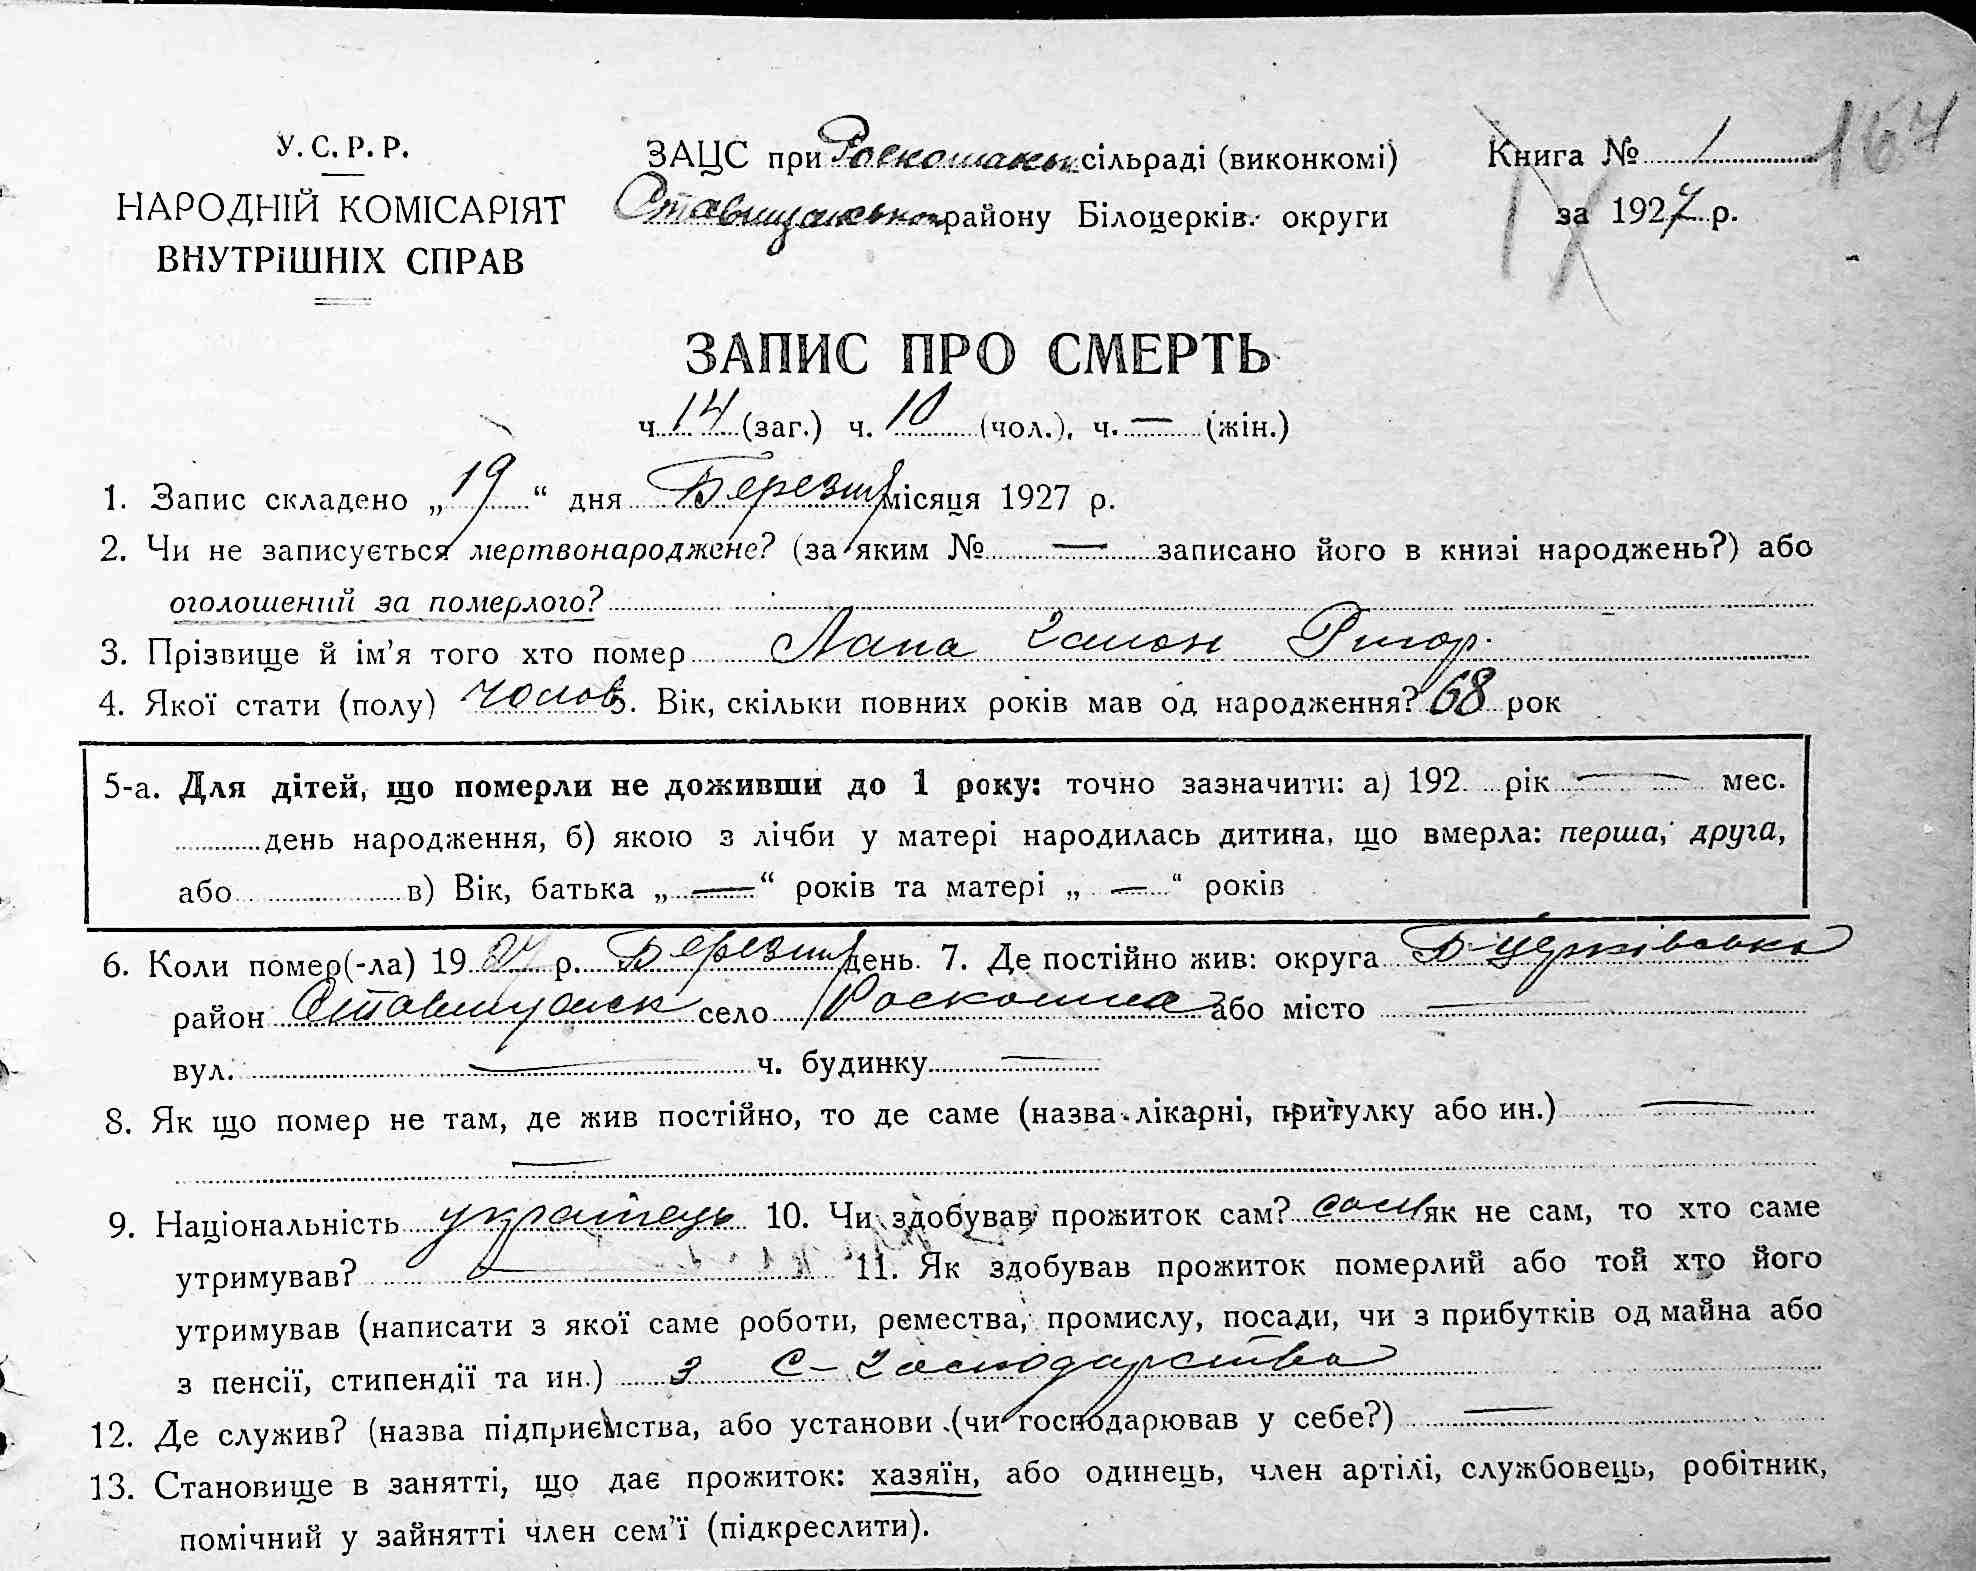 164
У.С.Р.Р.
НАРОДНІЙ КОМІСАРІЯТ
ВНУТРІШНІХ СПРАВ
ЗАЦС при сільраді (виконкомі)
району Білоцерків. округи
Книга № 1
за 1927 р.
ЗАПИС ПРО СМЕРТЬ
ч. 14 (заг.) ч. 10 (чол.), ч. — (жін.)
1. Запис складено „ 19 “ дня Березня місяця 1927 р.
2. Чи не записується мертвонароджене? (за яким № — записано його в книзі народжень?) або
оголошений за померлого?
3. Прізвище й ім'я того хто помер Лапа Ригор.
4. Якої стати (полу) чолов 5. Вік, скільки повних років мав од народження? 68 рок
5-а. Для дітей, що померли не доживши до 1 року: точно зазначити: а) 192 рік — мес.
день народження, б) якою з лічби у матері народилась дитина, що вмерла: перша, друга,
або в) Вік, батька „ — “ років та матері „ — “ років
6. Коли помер(-ла) 1927 р. Березня день. 7. Де постійно жив: округа Б-Церківська
район Ставищанськ село Роскошна або місто —
вул. — ч. будинку —
8. Як що помер не там, де жив постійно, то де саме (назва лікарні, притулку або ин.) —
—
9. Національність українець 10. Чи здобував прожиток сам? сам як не сам, то хто саме
утримував? — 11. Як здобував прожиток померлий або той хто його
утримував (написати з якої саме роботи, ремества, промислу, посади, чи з прибутків од майна або
з пенсії, стипендії та ин.) з С-Господарства
12. Де служив? (назва підприємства, або установи (чи господарював у себе?) —
13. Становище в занятті, що дає прожиток: хазяїн, або одинець, член артілі, службовець, робітник,
помічний у зайнятті член сем'ї (підкреслити).